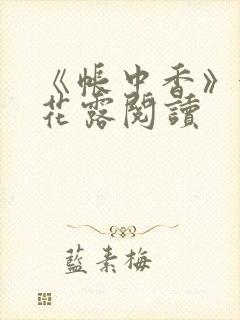 《帳中香》
花露閱讀
藍素梅